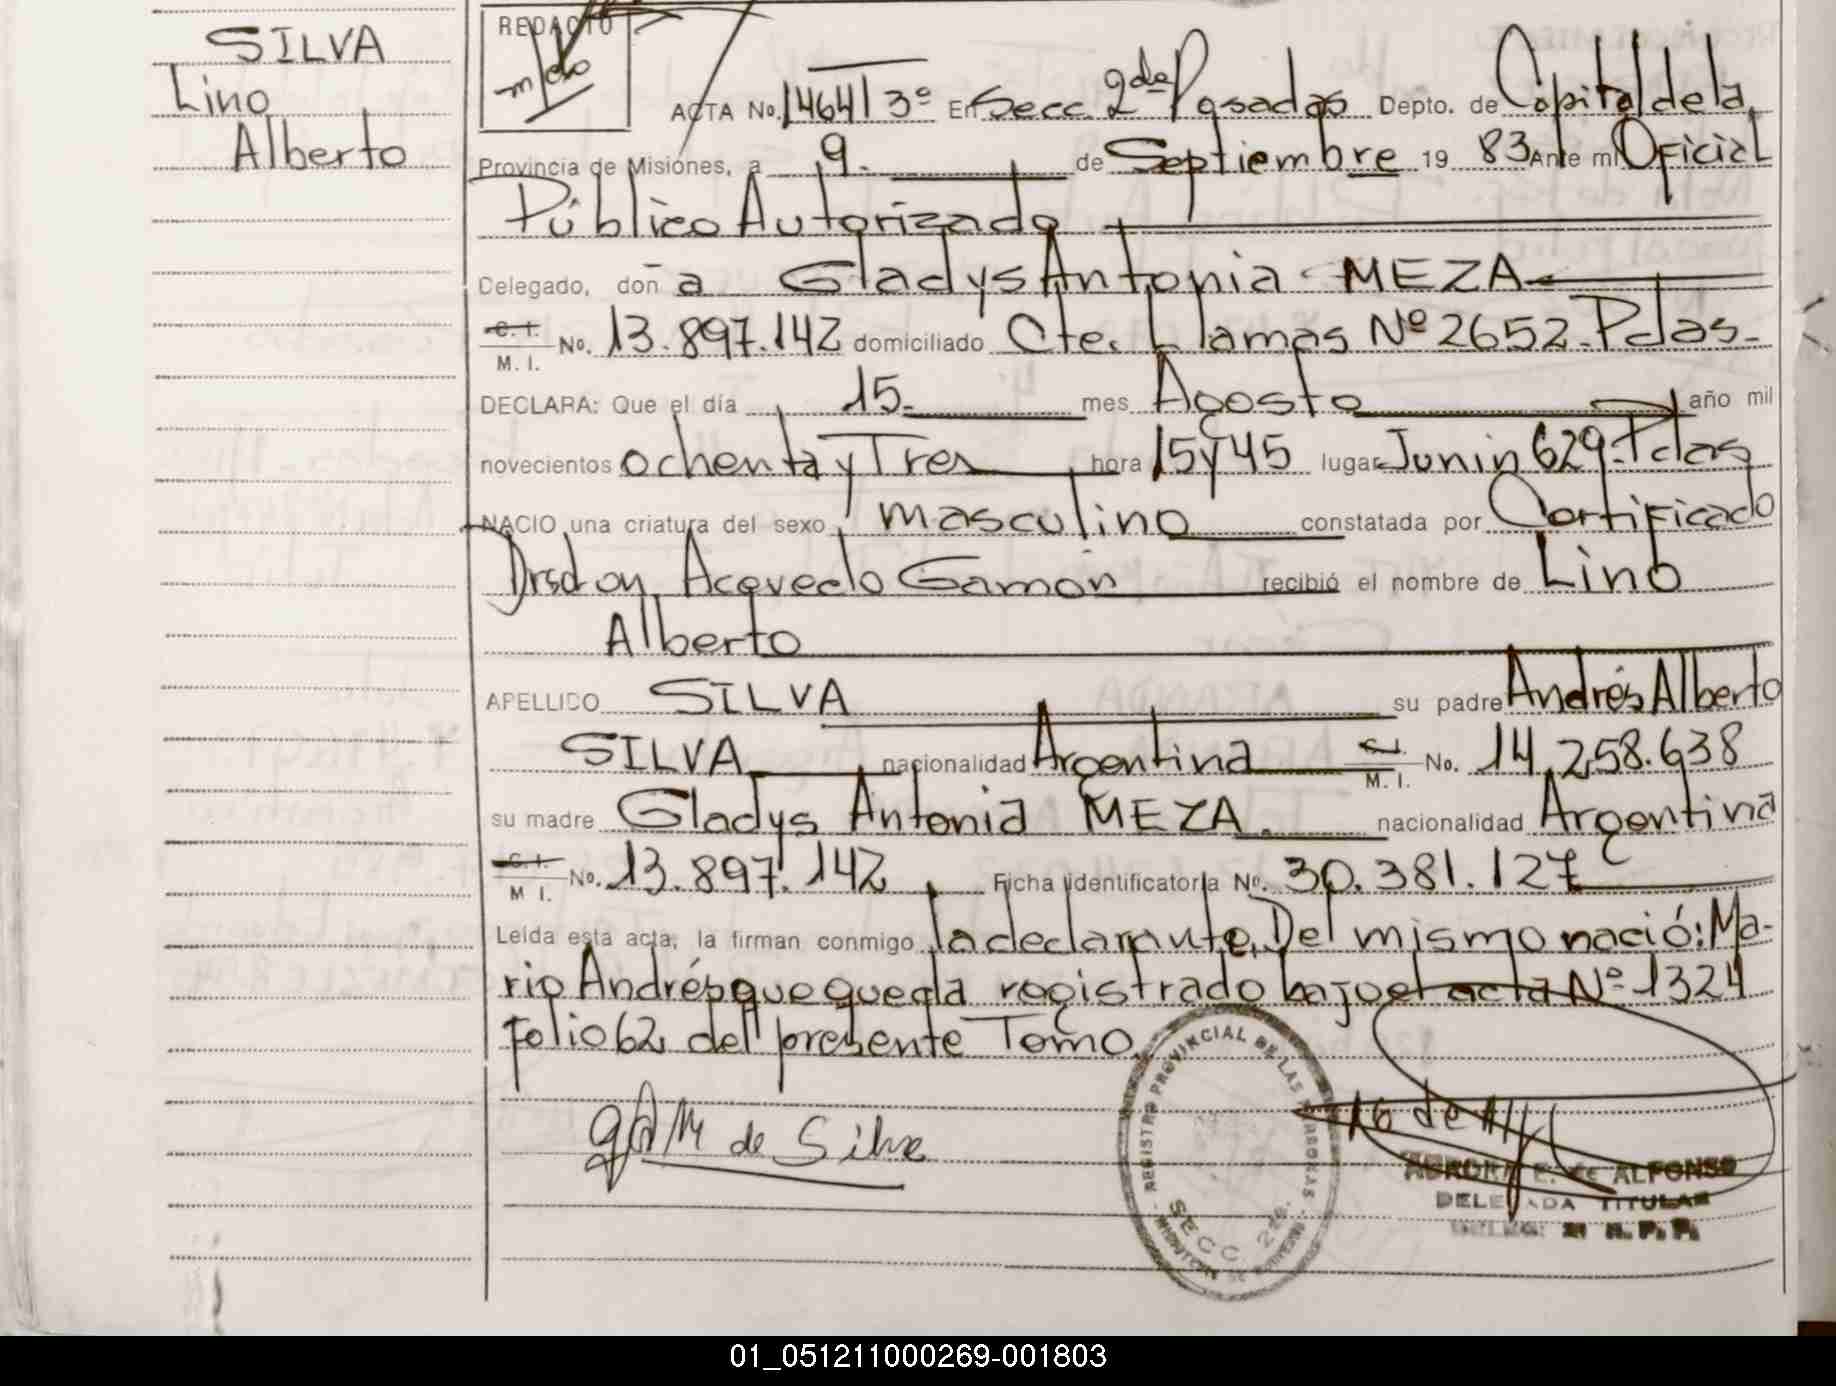 SILVA
Lino
Alberto
REDACTO
ACTA No. 1464 T 3º En Secc. 2da Posadas Depto. de Capital de la
Provincia de Misiones, a 9. de Septiembre 19 83 Ante mi Oficial
Público Autorizado
Delegado, doñ a Gladys Antonia MEZA
C. I. M. I. No. 13.897.142 domiciliado Cte. Llamas Nº 2652-Pdas-
DECLARA: Que el día 15- mes Agosto año mil
novecientos ochenta y Tres hora 15 y 45 lugar Junin 629-Pdas
NACIO una criatura del sexo masculino constatada por Certificado
Acevedo Gamón recibió el nombre de Lino
Alberto
APELLIDO SILVA su padre Andrés Alberto
SILVA nacionalidad Argentina M. I. No. 14.258.638
su madre Gladys Antonia MEZA. nacionalidad Argentina
C. I. M I. No. 13.897.142 Ficha identificatoria No. 30.381.127
Leída esta acta, la firman conmigo la declarante. Del mismo nació: Ma-
rio Andrés que queda registrado bajo el acta Nº 1324
folio 62 del presente Tomo.
GAM de Silva
REGISTRO PROVINCIAL DE LAS PERSONAS
SECC. 2da.
E. de ALFONSO
DELEGADA TITULAR
R. P. P.
01_051211000269-001803